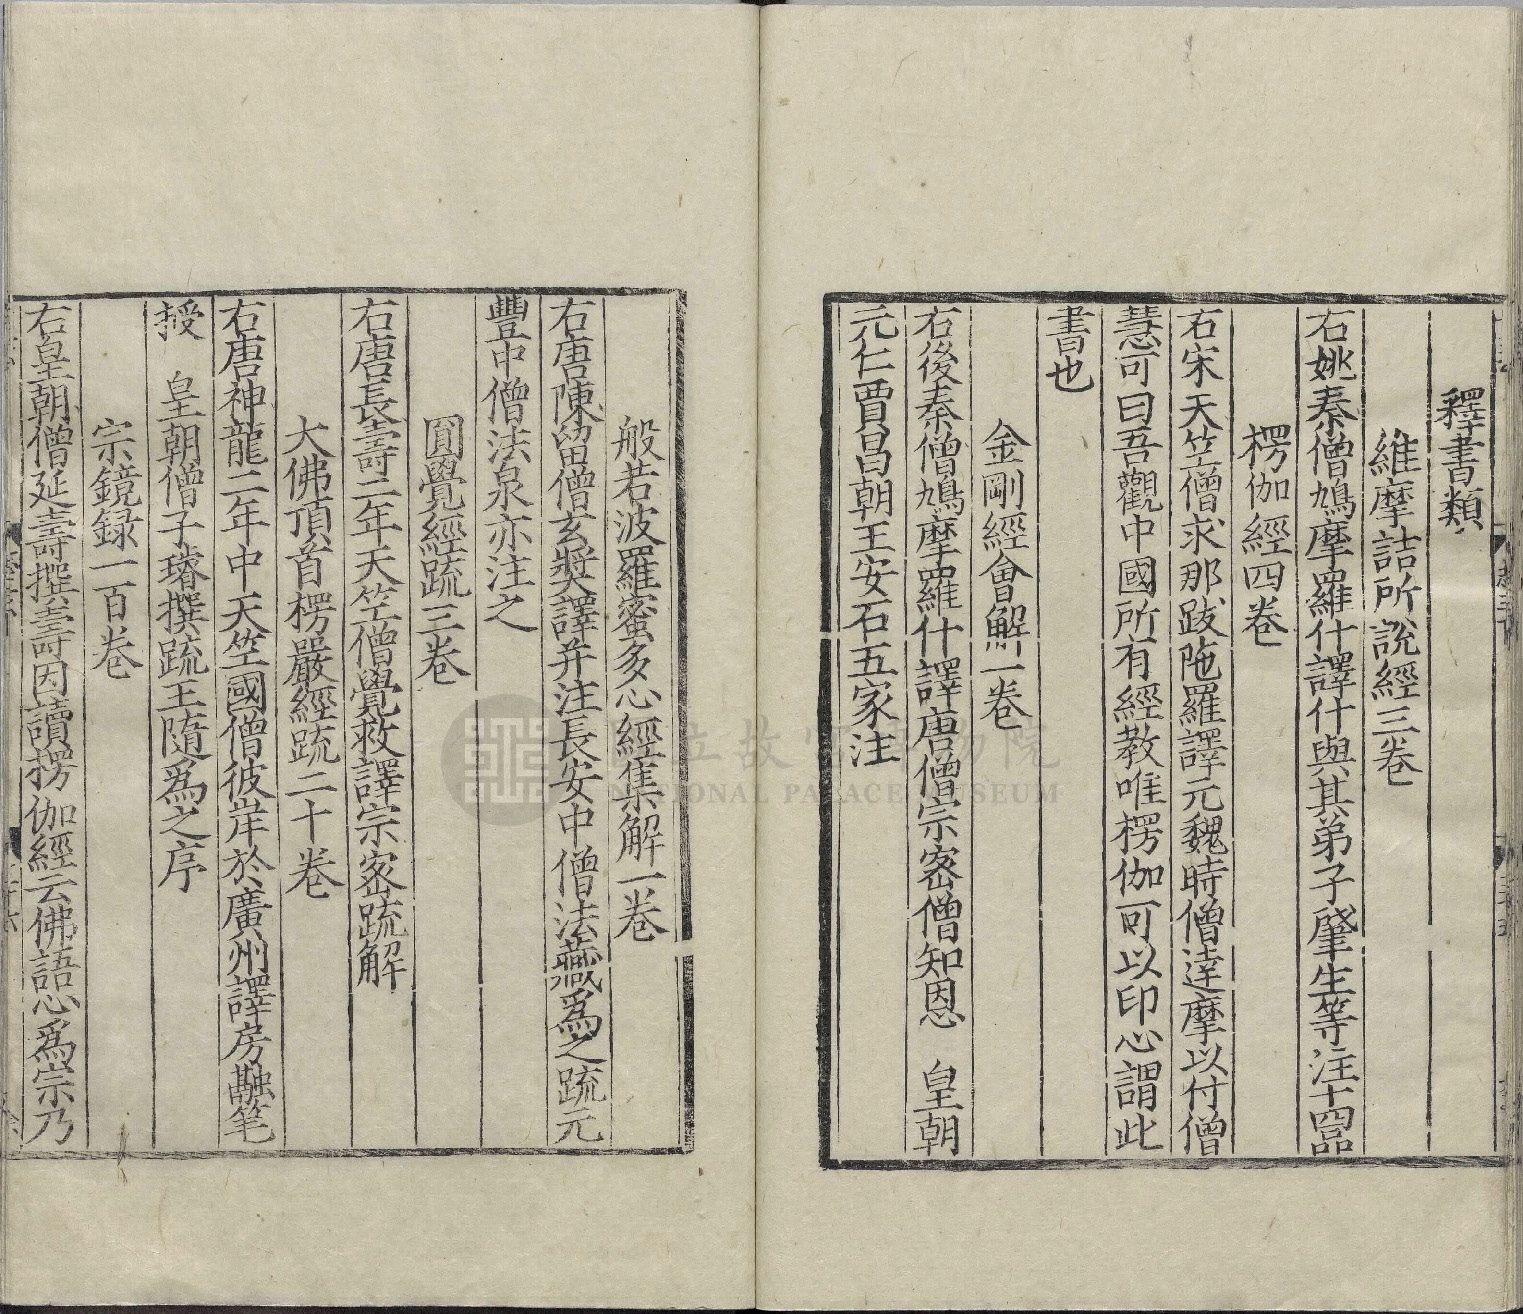 釋書類
維摩詰所說經三卷
右姚秦僧鳩摩羅什譯什與其弟子肇生等注十四品
楞伽經四卷
右宋天竺僧求那跋陁羅譯元魏時僧達摩以付僧
慧可曰吾觀中國所有經教唯楞伽可以印心謂此
書也
金剛經會解一卷
右後秦僧鳩摩羅什譯唐僧宗密僧知恩 皇朝
元仁賈昌朝王安石五家注
般若波羅蜜多心經集解一卷
右唐陳留僧玄奘譯并注長安中僧法藏爲之疏元
豐中僧法泉亦注之
圓覺經疏三卷
右唐長壽二年天竺僧覺救譯宗密疏解
大佛頂首楞嚴經疏二十卷
右唐神龍二年中天竺國僧彼岸於廣州譯房融筆
授 皇朝僧子璿撰疏王隨爲之序
宗鏡録一百卷
右皇朝僧延壽撰壽因讀楞伽經云佛語心爲宗乃
國立故宮博物院
NATIONAL PALACE MUSEUM